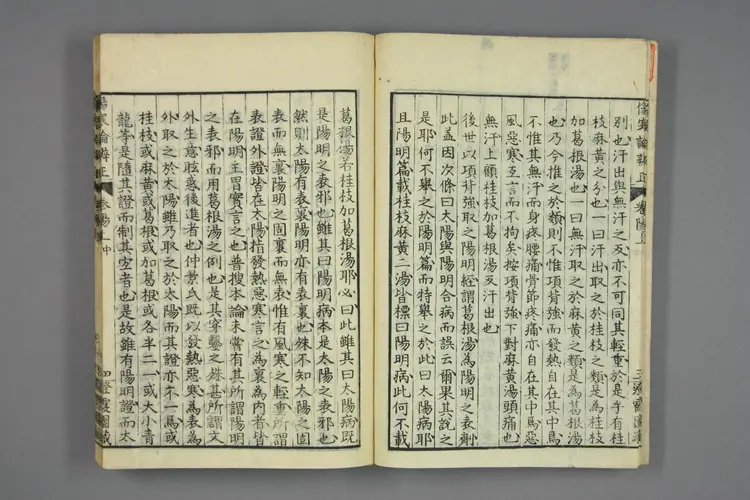 別也汗出與無汗之反亦不可同其輕重於是乎有桂
枝麻黃之分也一曰汗出取之於桂枝之類是為桂枝
加葛根湯也一曰無汗取之於麻黃之類是為葛根湯
也乃今惟之於頗則不惟項背強而發熱自在其中焉
不惟其無汗而身疼腰痛骨節疼痛亦自在其中焉惡
風惡寒互言而不拘矣按項背強下對麻黃湯頭痛也
無汗上顧桂枝加葛根湯反汗出也
後世以項背強取之陽明經謂葛根湯為陽明之表劑
此蓋因次條曰太陽與陽明合病而誤云爾果其說之
是耶何不舉之於陽明篇而特舉之於此曰太陽病耶
且陽明篇載桂枝麻黃二湯皆標曰陽明病此何不載
葛根湯若桂枝加葛根湯耶必曰此雖其曰太陽病既
是陽明之表邪也雖其曰陽明病本是太陽之表邪也
然則太陽有表裏陽明亦有表裏也殊不知太陽之固
表而無裏陽明之固裏而無表惟有風寒之輕重所謂
表證外證皆在太陽指發熱惡寒言之為裏為內者皆
在陽明主胃實言之也普搜本論未嘗有其所謂陽明
之表邪而用葛根湯之例也是其穿鑿之殊甚所謂文
外生意眩惑後進者也仲景氏既以發熱惡寒為表為
外取之於太陽雖乃取之於太陽而其證亦不一焉或
桂枝或麻黃或葛根或加葛根或各半二一或大小青
龍等是隨其證而制其宜者也是故雖有陽明證而太
傷寒論辨正
卷陽上
傷寒論辨正
卷陽上
中
四